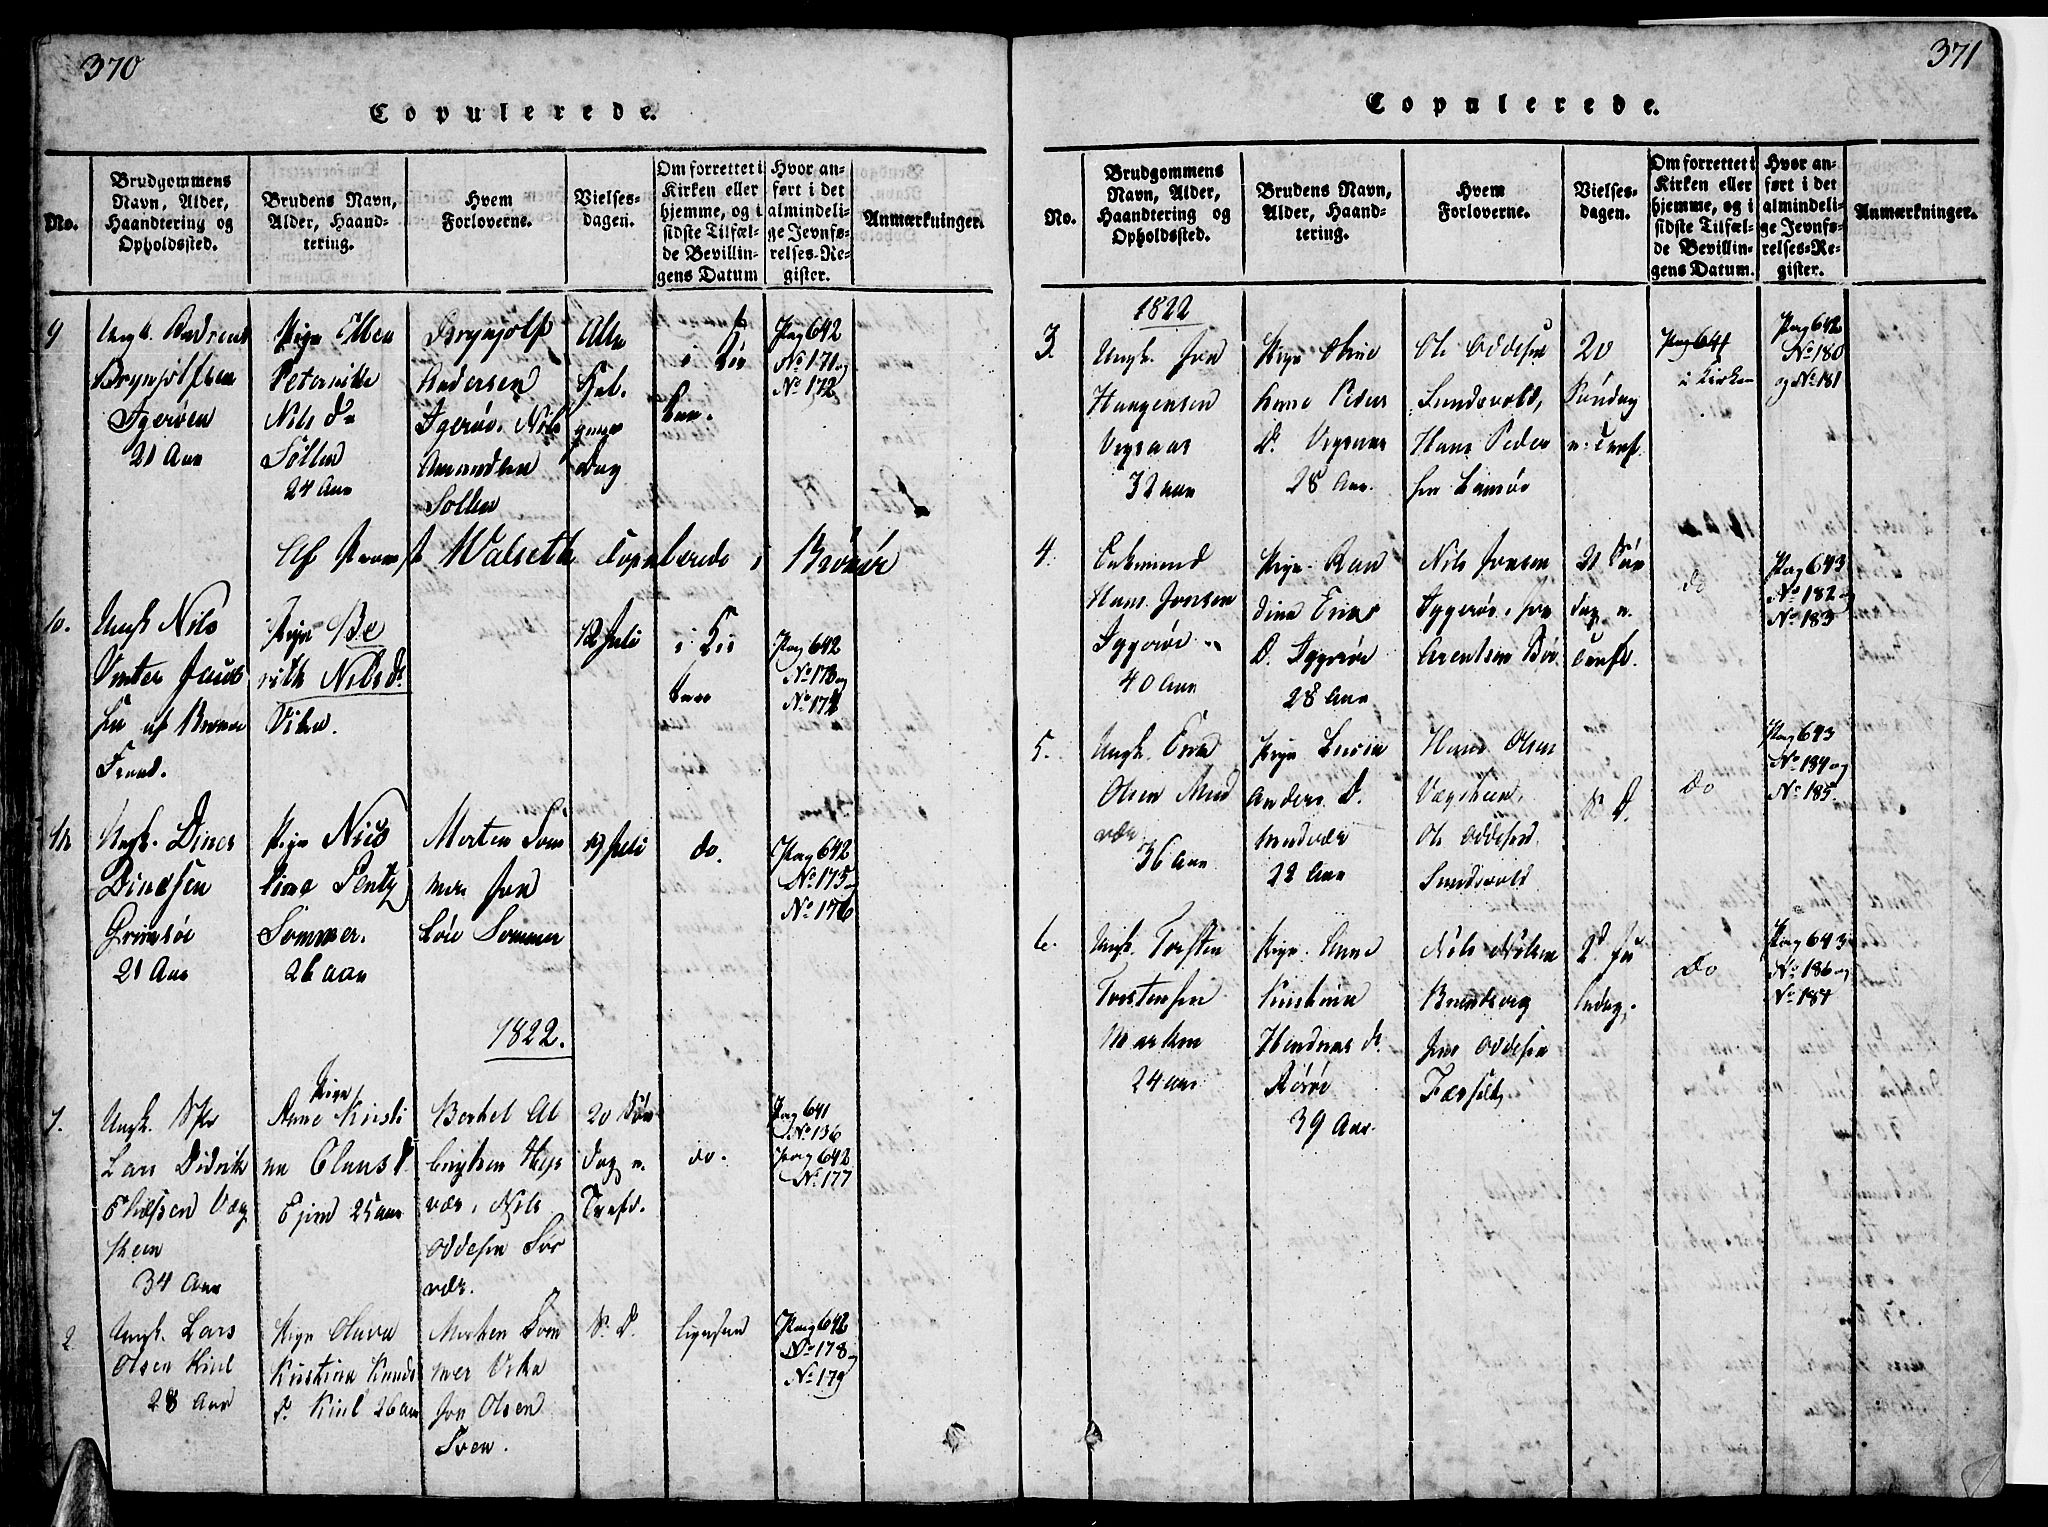 370
Copulerede.
No.
Brudgommens
Navn, Alder,
Haandtering og
Opholdssted.
Brudens Navn,
Alder, Haand-
tering.
Hvem
Forloverne.
Vielses-
dagen.
Om forrettet i
Kirken eller
hjemme, og i
sidste Tilfæl-
de Bevillin-
gens Datum
Hvor an-
ført i det
almindeli-
ge Jevnfø-
relses-Re-
gister.
Anmærkninger.
9
Ungk. Andreas
Brynjolfsen
Igerøen
21 Aar
Pige Ellen
Peternille
Nils Dr
Søllen
24 Aar
Brynjolf
Andersen
Igerøe. Nils
Amundsen
Sollen
Alle
Hel.
gens
Dag
i Kir
ken.
Pag 642
No 171 og
No 172
Walseth Copulerede i Brönöe
10.
Ungk Nils
Vinter Jacob
Sen af Brönöe
Pige Be
rith Nils D.
Vika.
12 Juli
i Kir
ken
Pag 642
No 173 og
No 174
11
Ungk. Dines
Dinesen
Grimsöe
21 Aar
Pige Nico
line Pentz
Sommer.
26 aar
Morten Som
mer Jon
Sommer
19 Juli
do.
Pag 642
No 175 og
No 176
1822.
1.
Ungk.
Lars Didrik
Eliæssen Væg
steen
34 Aar
Pige
Anne Kristi
na Claus D.
25 aar
Berhel Al
brigtsen
vær, Nils
Oddesen Sör
vær.
20 Søn
dag e.
Trefd.
do.
Pag 641
No 136
Pag 642
No 177
2
Ungk. Lars
Olsen Kiil
28 Aar
Pige Oluva
Kristina Knuds
D. Kiil 26 aar
Morten Som
mer Vika
Jon Olsen
Sven.
S. D.
Pag 642
No 178 og
No 179
371
Copulerede.
No.
Brudgommens
Navn, Alder,
Haandtering og
Opholdssted.
Brudens Navn,
Alder, Haand-
tering.
Hvem
Forloverne.
Vielses-
dagen.
Om forrettet i
Kirken eller
hjemme, og i
sidste Tilfæl-
de Bevillin-
gens Datum.
Hvor an-
ført i det
almindeli-
ge Jevnfø-
relses-Re-
gister.
Anmærkninger.
1822
3.
Ungk. Jon
Haagensen
Vegsaas
32 aar
Pige
Peders
D. Vegsaas
28 Aar.
Ole Oddesen
Sundsvold,
Hans Peder
sen
20
Söndag
e. Trefd.
i Kirken
Pag 642
No 180
og No 181
4.
Enkemand
Hans Jonsen
Iggeröe
40 Aar
Pige Ran
dine Eriks
D. Iggeröe
28 Aar
Nils Jonsen
Iggeröe, Jon
Arentsen Böe.
21 Søn
dag e.
Trefd.
do
Pag 643
No 182 og
No 183
5.
Ungk. Erik
Olsen Mud
vær
36 Aar
Pige
Anders D.
Mudvær
22 Aar
Hans Olsen
Vægsteen,
Ole Oddesen
Sundsvold
S. D.
Do
Pag 643
No 184 og
No 185
6.
Ungk. Torsten
Torstensen
24 aar
Pige Anne
Kristina
Hendriks D.
Rörøe
39 Aar.
Nils Nilsen
Jens Oddesen
2d. Ju
ledag.
Do
Pag 643
No 186 og
No 187